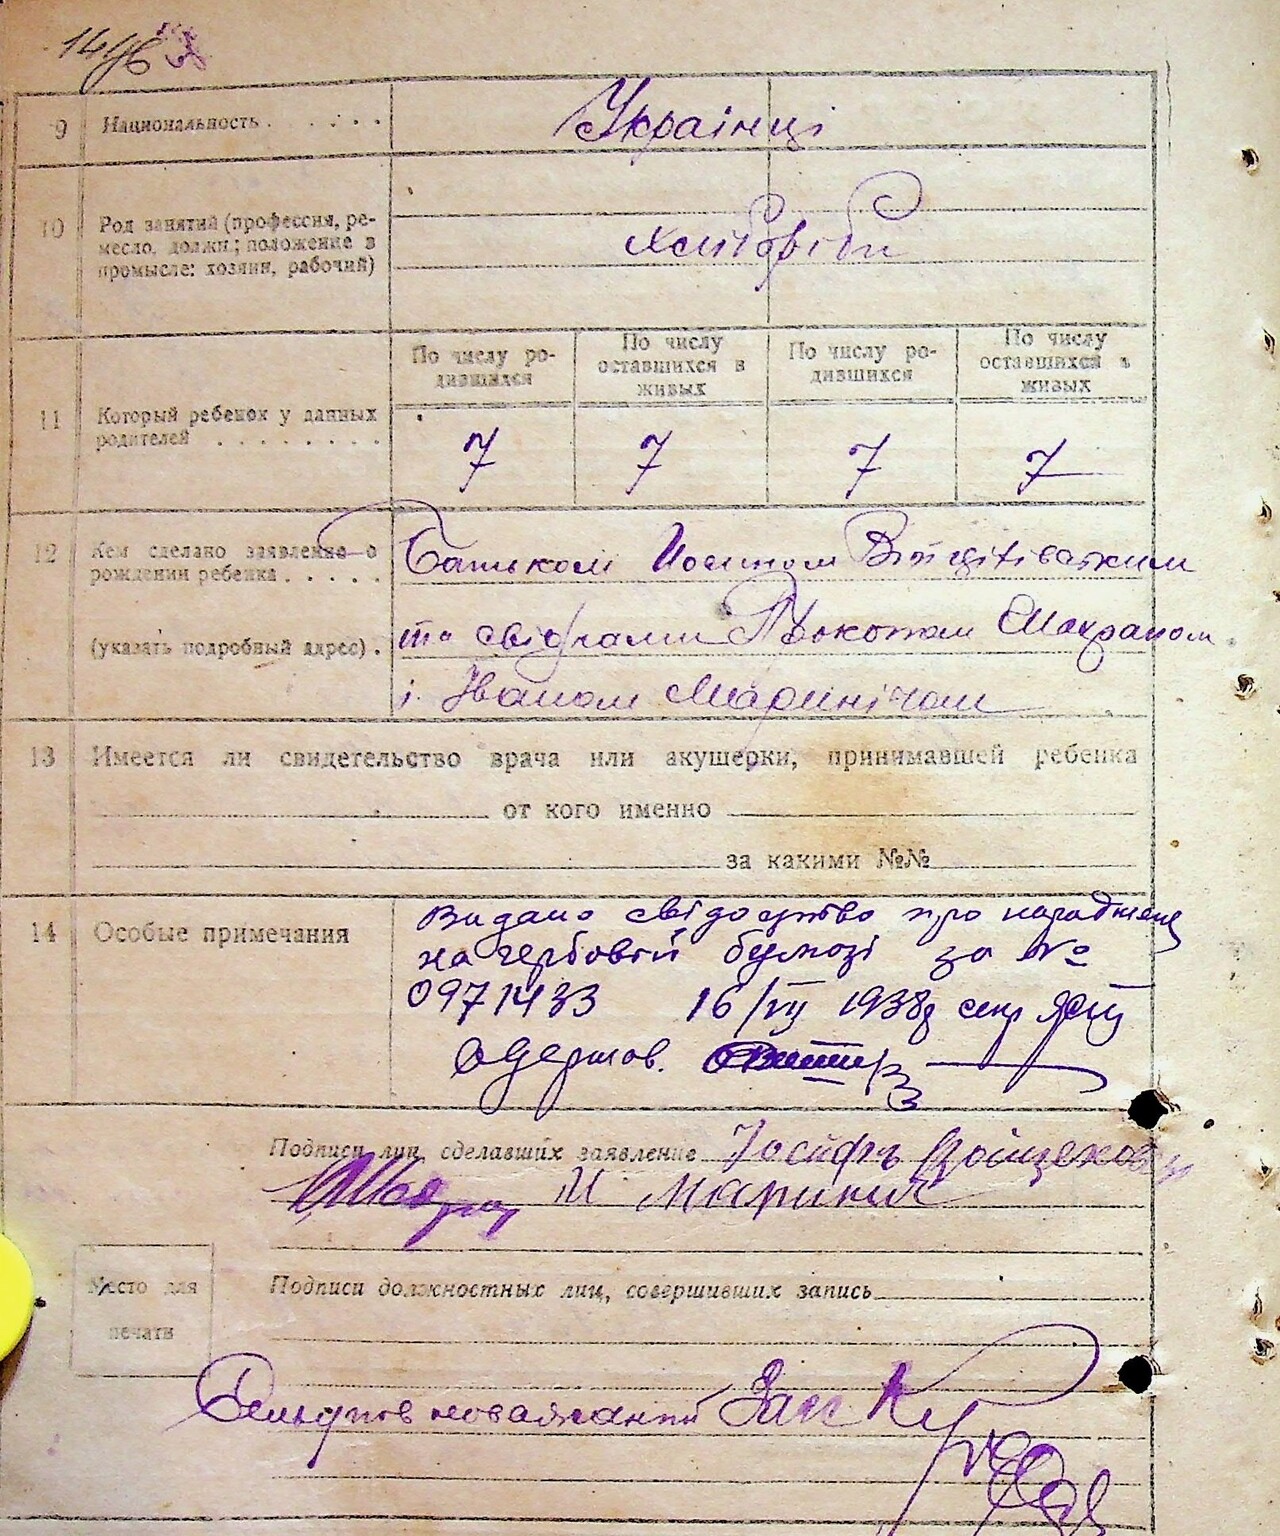 1446
9 Национальность . . . . . Українці
10 Род занятий (профессия, ре-
месло, должн.; положение в
промысле: хозяин, рабочий)
хлібороби
По числу ро-
дившихся
По числу
оставшихся в
живых
По числу ро-
дившихся
По числу
оставшихся в
живых
11 Который ребенок у данных
родителей . . . . . . . .
7 7 7 7
12 Кем сделано заявление о
рождении ребенка . . . . .
Батьком Йосипом
(указать подробный адрес) .
та свідками Прокопом
і Іваном Маринічом
13 Имеется ли свидетельство врача или акушерки, принимавшей ребенка
от кого именно
за какими №№
14 Особые примечания
Видано свідоцтво про народжен
на гербовій бумазі за №
0971433 16/VII 1938р секр
Одержав.
Подписи лиц, сделавших заявление Іосифъ
И Маринич
Место для
печати
Подписи должностных лиц, совершивших запись
Заг